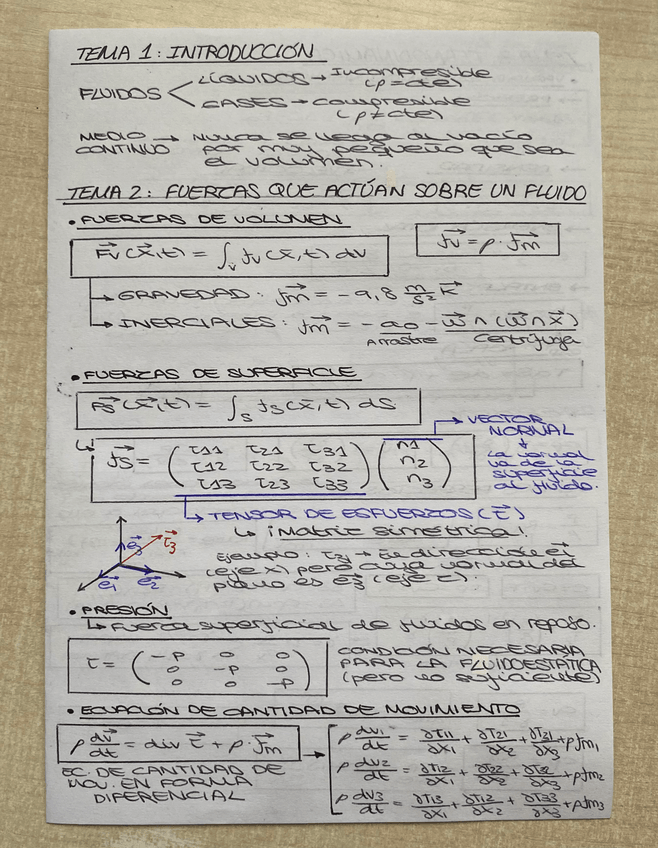 TEMA 1: INTRODUCCIÓN
FLUIDOS < LÍQUIDOS → Incompresible (ρ = cte)
GASES → compresible (ρ ≠ cte)
MEDIO CONTINUO → Nunca se llega al vacío
por muy pequeño que sea
el volumen.
TEMA 2: FUERZAS QUE ACTÚAN SOBRE UN FLUIDO
• FUERZAS DE VOLUMEN
Fv(x,t) = ∫v fv(x,t) dv
fv = ρ · fm
GRAVEDAD: fm = -9,8 m/s² K
INERCIALES: fm = -ao - w ∧ (w ∧ x)
Arrastre Centrífuga
• FUERZAS DE SUPERFICIE
Fs(x,t) = ∫s fs(x,t) ds
VECTOR
NORMAL
La normal
va de la
superficie
al fluido.
fs = (τ11 τ21 τ31) (n1)
(τ12 τ22 τ32) (n2)
(τ13 τ23 τ33) (n3)
TENSOR DE ESFUERZOS (τ)
¡Matriz simétrica!
e3 τ3
e1 e2
Ejemplo: τ31 → En dirección e1
(eje x) pero cuya normal del
plano es e3 (eje z).
• PRESIÓN
Fuerza superficial de fluidos en reposo.
τ = (-p 0 0)
(0 -p 0)
(0 0 -p)
CONDICIÓN NECESARIA
PARA LA FLUIDOESTÁTICA
(pero no suficiente)
• ECUACIÓN DE CANTIDAD DE MOVIMIENTO
ρ dv/dt = div τ + ρ · fm
EC. DE CANTIDAD DE
MOV. EN FORMA
DIFERENCIAL
ρ dv1/dt = ∂τ11/∂x1 + ∂τ21/∂x2 + ∂τ31/∂x3 + ρfm1
ρ dv2/dt = ∂τ12/∂x1 + ∂τ22/∂x2 + ∂τ32/∂x3 + ρfm2
ρ dv3/dt = ∂τ13/∂x1 + ∂τ12/∂x2 + ∂τ33/∂x3 + ρfm3